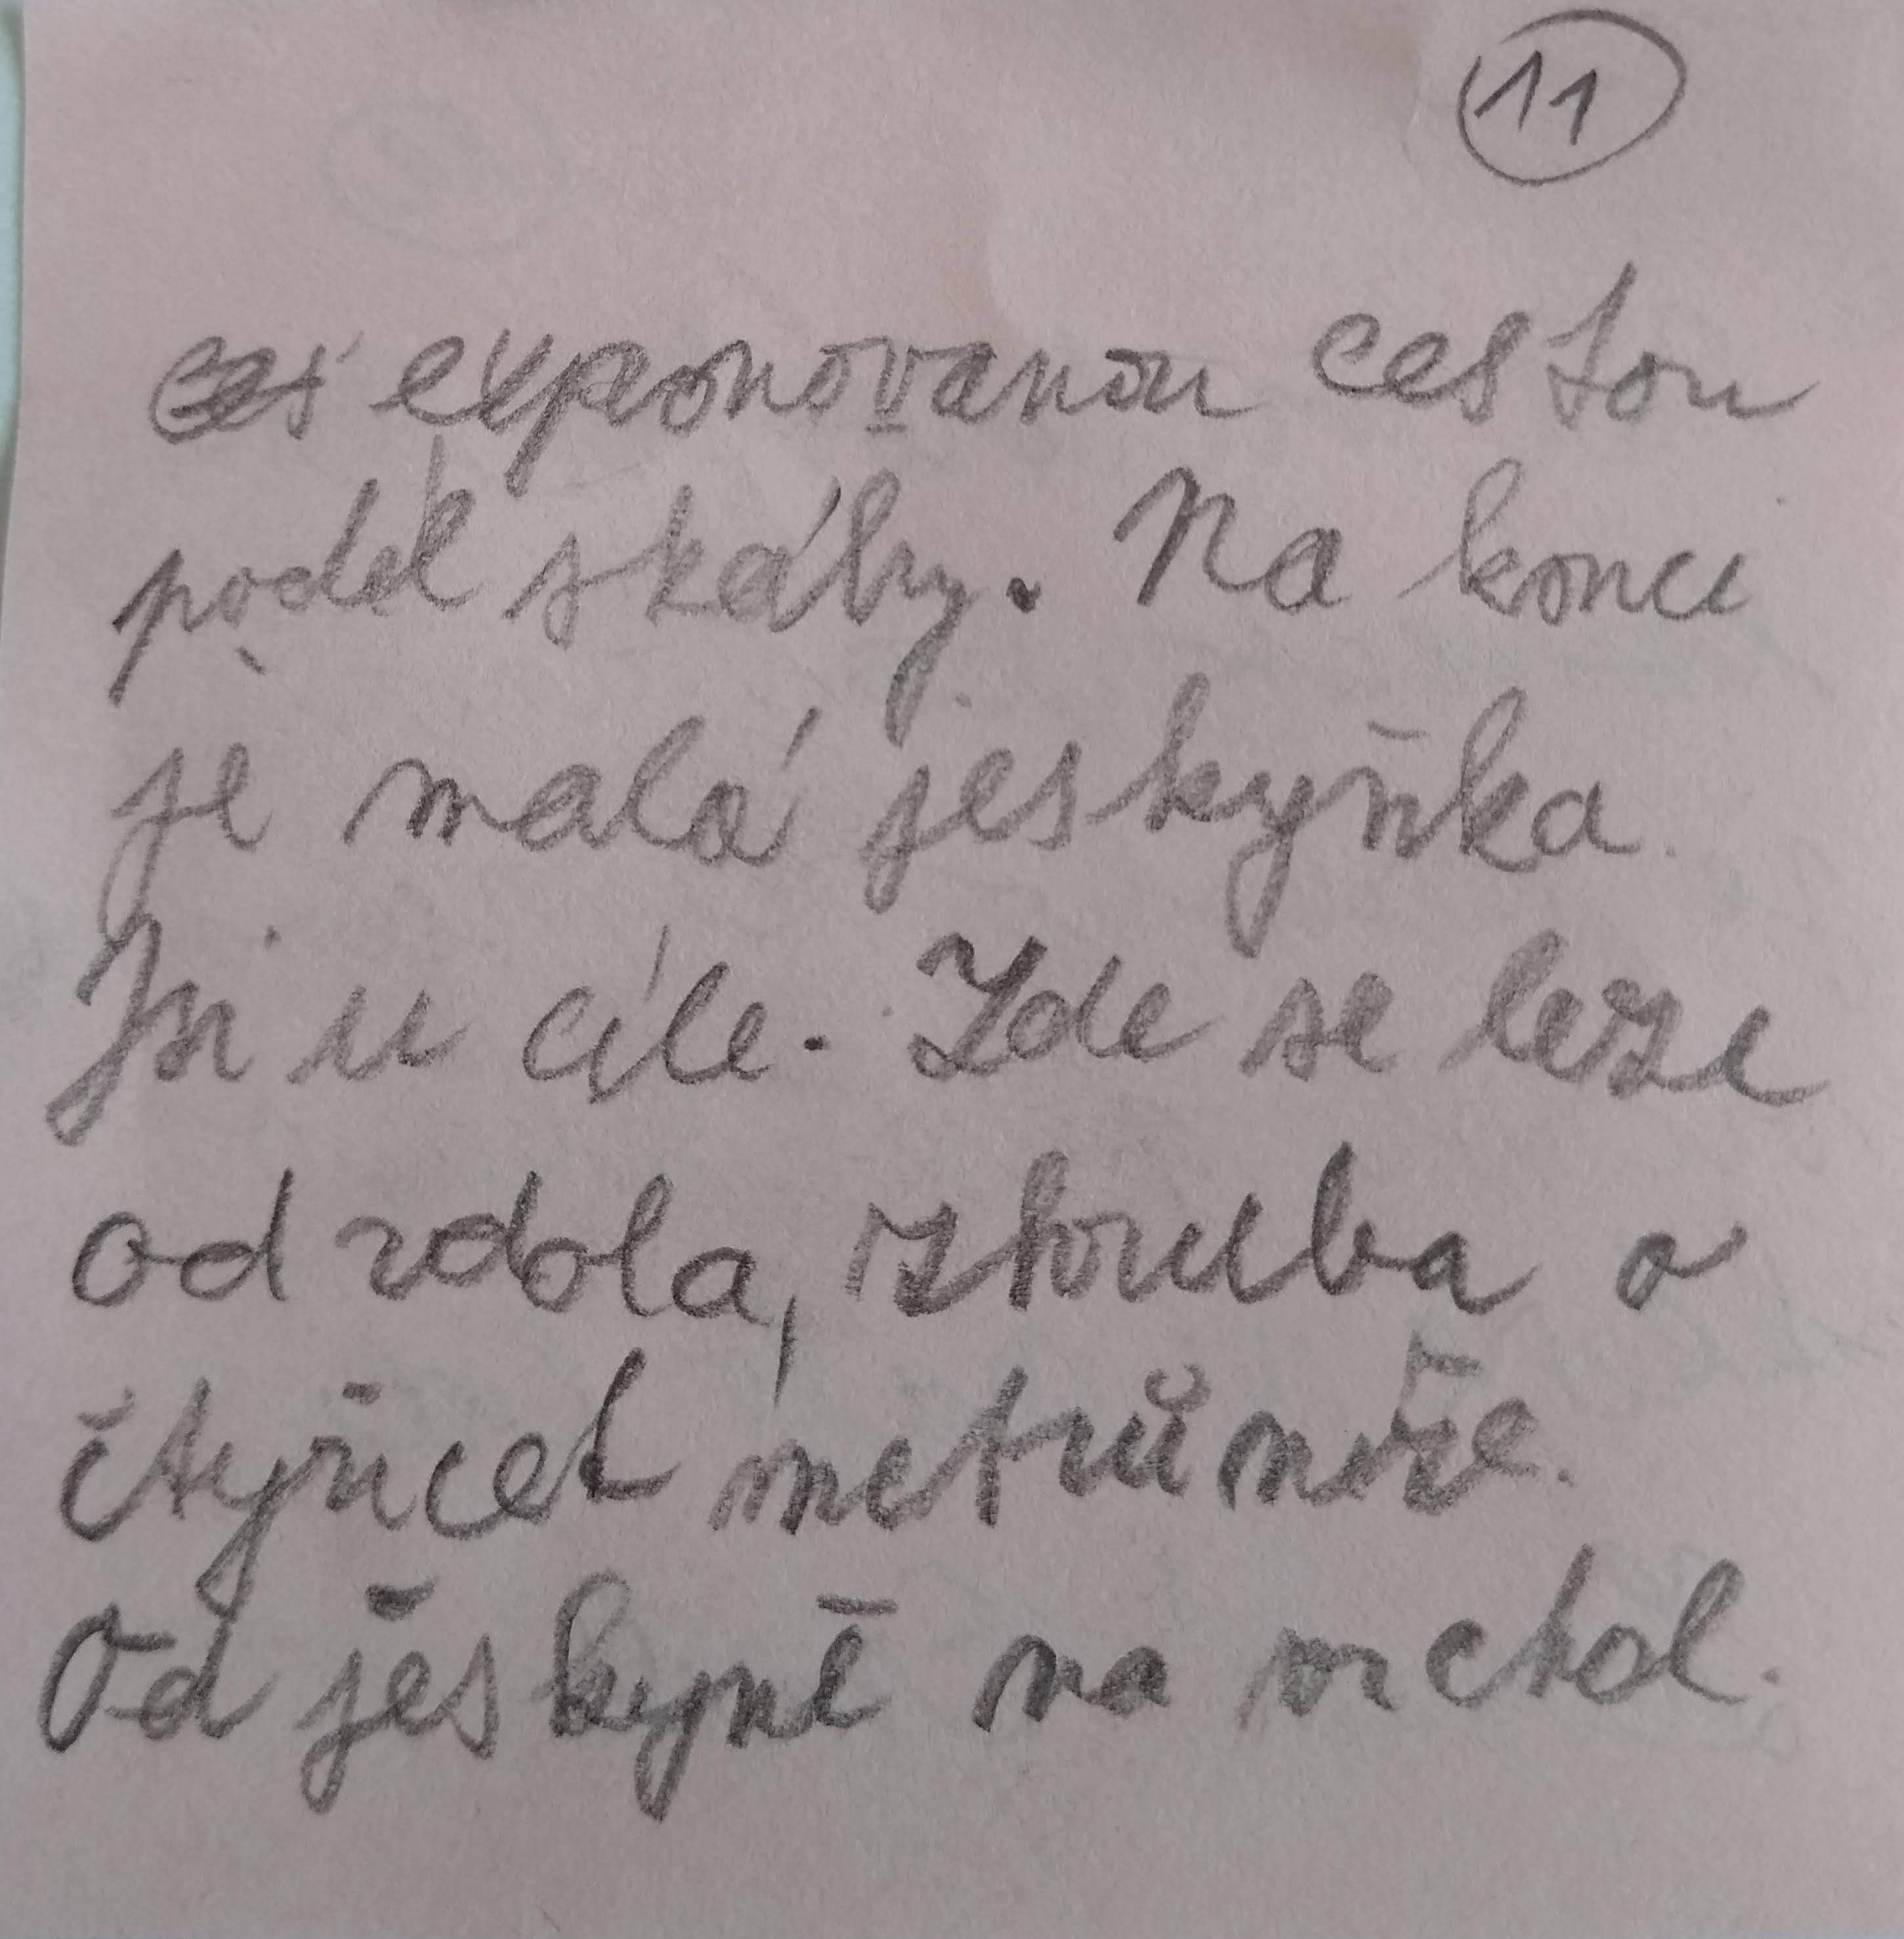 11
exponovanou cestou
podél skály. Na konci
je malá jeskyňka.
Jsi u cíle. Zde se leze
od zdola, zhruba o
čtyřicet metrů níže.
Od jeskyně na vrchol.